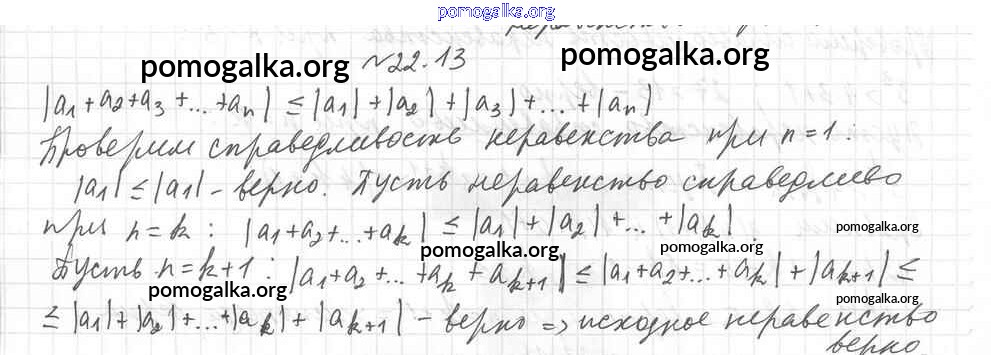 pomogalka.org
pomogalka.org №22.13 pomogalka.org
|a₁+a₂+a₃+...+aₙ| ≤ |a₁|+|a₂|+|a₃|+...+|aₙ|
Проверим справедливость неравенства при n=1:
|a₁| ≤ |a₁| - верно. Пусть неравенство справедливо
при n=k: |a₁+a₂+...+aₖ| ≤ |a₁|+|a₂|+...+|aₖ|. pomogalka.org
pomogalka.org pomogalka.org
Пусть n=k+1: |a₁+a₂+...+aₖ+aₖ₊₁| ≤ |a₁+a₂+...+aₖ|+|aₖ₊₁| ≤
pomogalka.org pomogalka.org pomogalka.org
≤ |a₁|+|a₂|+...+|aₖ|+|aₖ₊₁| - верно => исходное неравенство
верно